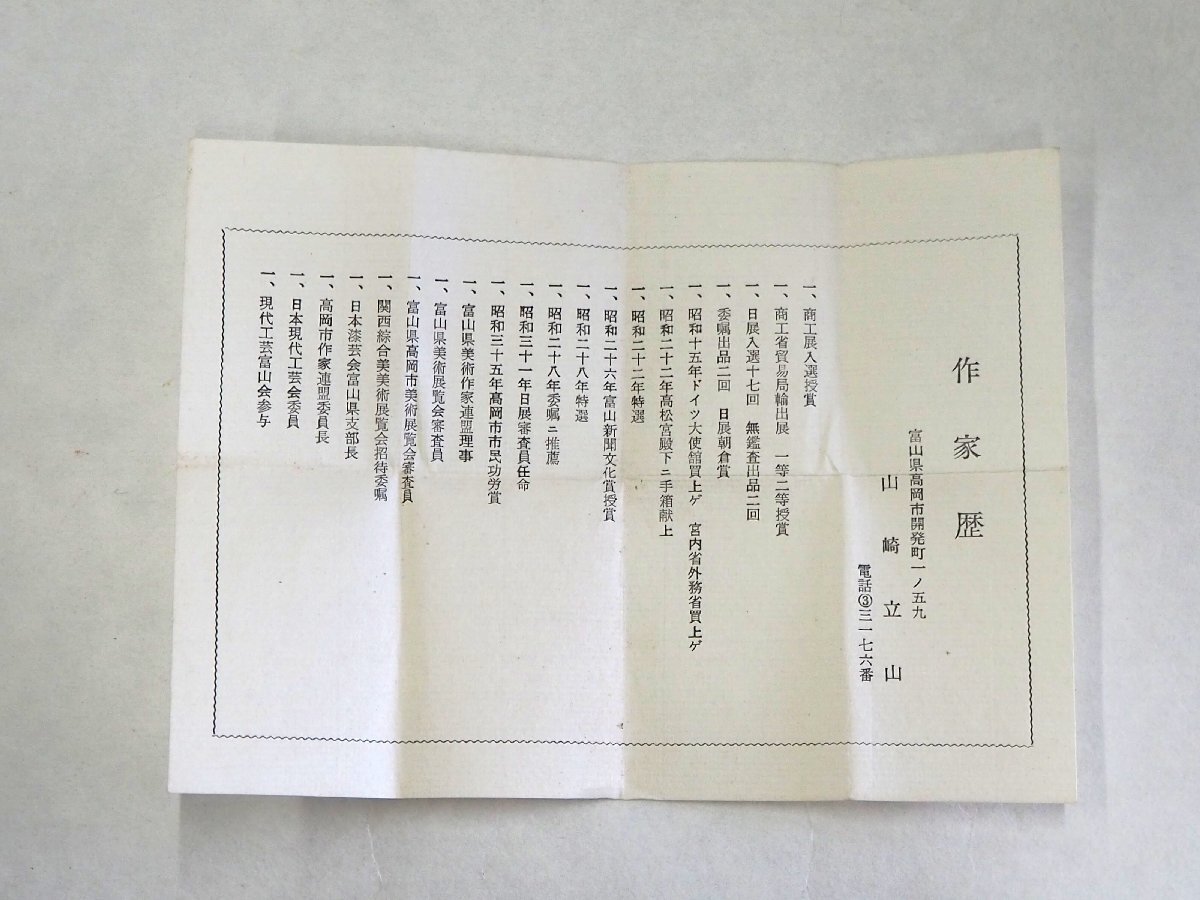 作家歴
富山県高岡市開発町一ノ五九
山崎立山
電話③三一七六番
一、商工展入選授賞
一、商工省貿易局輸出展　一等二等授賞
一、日展入選十七回　無鑑査出品二回
一、委嘱出品二回　日展朝倉賞
一、昭和十五年ドイツ大使舘買上ゲ　宮内省外務省買上ゲ
一、昭和二十二年高松宮殿下ニ手箱献上
一、昭和二十二年特選
一、昭和二十六年富山新聞文化賞授賞
一、昭和二十八年特選
一、昭和二十八年委嘱ニ推薦
一、昭和三十一年日展審査員任命
一、昭和三十五年高岡市市民功労賞
一、富山県美術作家連盟理事
一、富山県美術展覧会審査員
一、富山県高岡市美術展覧会審査員
一、関西綜合美美術展覧会招待委嘱
一、日本漆芸会富山県支部長
一、高岡市作家連盟委員長
一、日本現代工芸会委員
一、現代工芸富山会参与